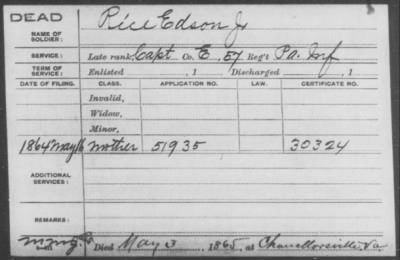 DEAD
NAME OF SOLDIER: Rice Edson Jr
SERVICE: Late rank, Capt Co. E, 57 Reg't Pa. Inf
TERM OF SERVICE: Enlisted , 1 Discharged , 1
DATE OF FILING. CLASS. APPLICATION NO. LAW. CERTIFICATE NO.
Invalid,
Widow,
Minor,
1864 May 16 Mother 51935 30324
ADDITIONAL SERVICES:
REMARKS:
Died May 3 1865, at Chancellorsville, Va.